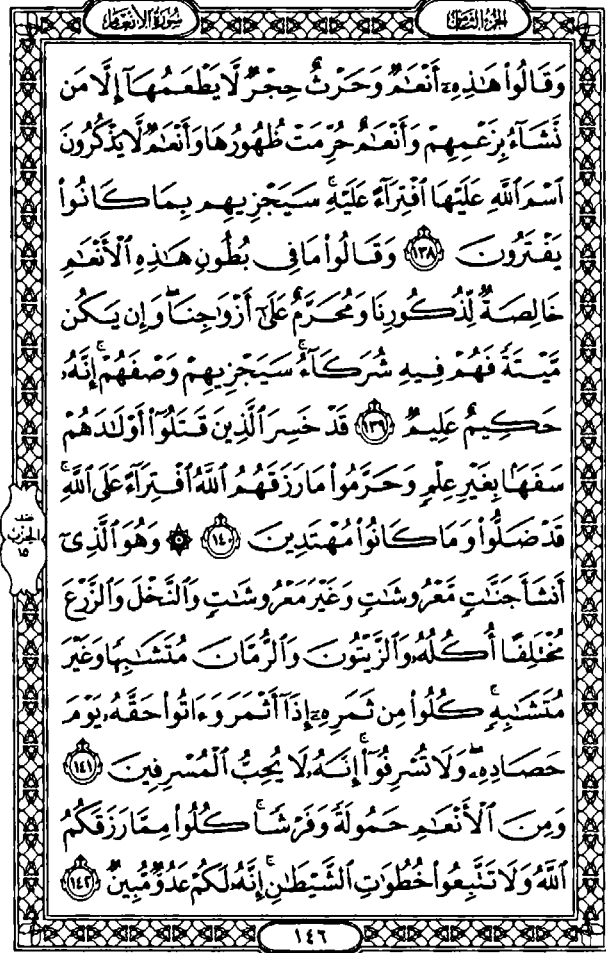 الجزء الثامن
سورة الأنعام
وَقَالُوا۟ هَـٰذِهِۦٓ أَنْعَـٰمٌ وَحَرْثٌ حِجْرٌ لَّا يَطْعَمُهَآ إِلَّا مَن
نَّشَآءُ بِزَعْمِهِمْ وَأَنْعَـٰمٌ حُرِّمَتْ ظُهُورُهَا وَأَنْعَـٰمٌ لَّا يَذْكُرُونَ
ٱسْمَ ٱللَّهِ عَلَيْهَا ٱفْتِرَآءً عَلَيْهِ ۚ سَيَجْزِيهِم بِمَا كَانُوا۟
يَفْتَرُونَ ١٣٨ وَقَالُوا۟ مَا فِى بُطُونِ هَـٰذِهِ ٱلْأَنْعَـٰمِ
خَالِصَةٌ لِّذُكُورِنَا وَمُحَرَّمٌ عَلَىٰٓ أَزْوَٰجِنَا ۖ وَإِن يَكُن
مَّيْتَةً فَهُمْ فِيهِ شُرَكَآءُ ۚ سَيَجْزِيهِمْ وَصْفَهُمْ ۚ إِنَّهُۥ
حَكِيمٌ عَلِيمٌ ١٣٩ قَدْ خَسِرَ ٱلَّذِينَ قَتَلُوٓا۟ أَوْلَـٰدَهُمْ
سَفَهًۢا بِغَيْرِ عِلْمٍ وَحَرَّمُوا۟ مَا رَزَقَهُمُ ٱللَّهُ ٱفْتِرَآءً عَلَى ٱللَّهِ ۚ
قَدْ ضَلُّوا۟ وَمَا كَانُوا۟ مُهْتَدِينَ ١٤٠ ۞ وَهُوَ ٱلَّذِىٓ
نصف
الحزب
١٥
أَنشَأَ جَنَّـٰتٍ مَّعْرُوشَـٰتٍ وَغَيْرَ مَعْرُوشَـٰتٍ وَٱلنَّخْلَ وَٱلزَّرْعَ
مُخْتَلِفًا أُكُلُهُۥ وَٱلزَّيْتُونَ وَٱلرُّمَّانَ مُتَشَـٰبِهًا وَغَيْرَ
مُتَشَـٰبِهٍ ۚ كُلُوا۟ مِن ثَمَرِهِۦٓ إِذَآ أَثْمَرَ وَءَاتُوا۟ حَقَّهُۥ يَوْمَ
حَصَادِهِۦ ۖ وَلَا تُسْرِفُوٓا۟ ۚ إِنَّهُۥ لَا يُحِبُّ ٱلْمُسْرِفِينَ ١٤١
وَمِنَ ٱلْأَنْعَـٰمِ حَمُولَةً وَفَرْشًا ۚ كُلُوا۟ مِمَّا رَزَقَكُمُ
ٱللَّهُ وَلَا تَتَّبِعُوا۟ خُطُوَٰتِ ٱلشَّيْطَـٰنِ ۚ إِنَّهُۥ لَكُمْ عَدُوٌّ مُّبِينٌ ١٤٢
١٤٦